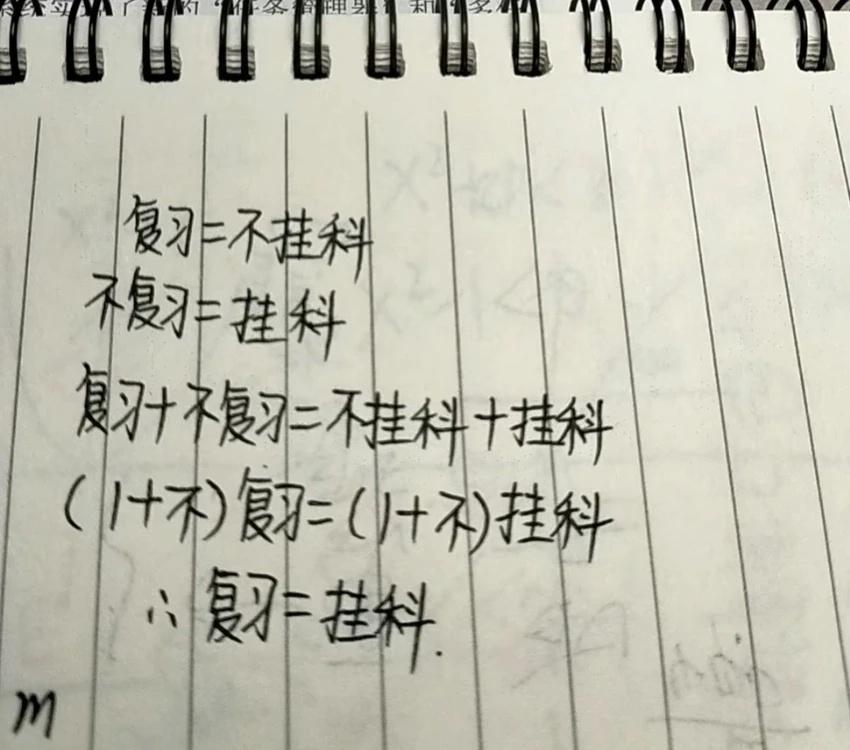 复习=不挂科
不复习=挂科
复习+不复习=不挂科+挂科
(1+不)复习=(1+不)挂科
∴复习=挂科.
m